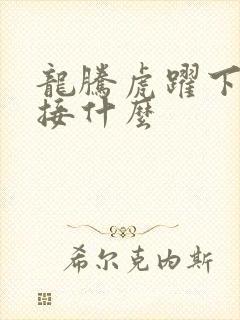 龍騰虎躍下
接什麼
希尔克内斯